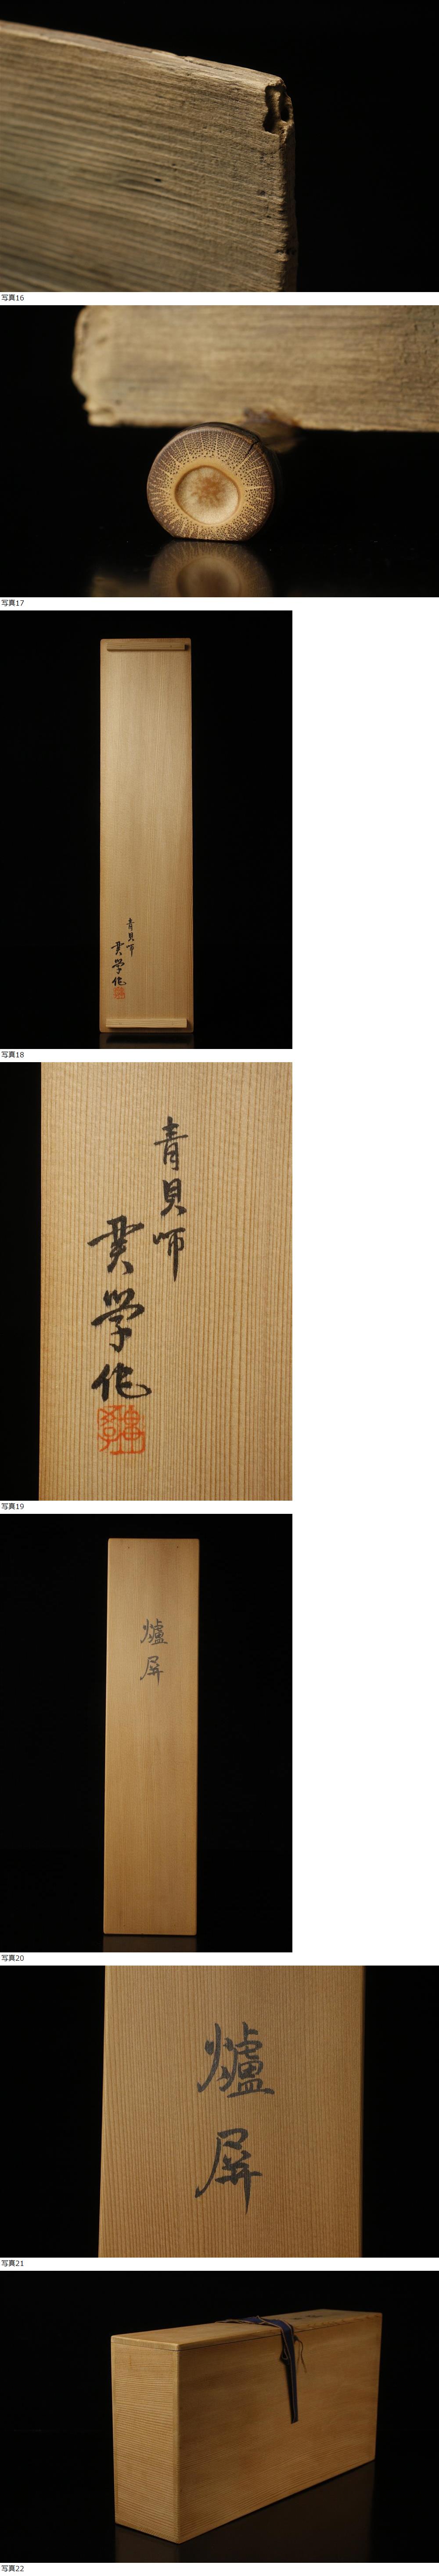 写真16
写真17
青貝師
貫学作
写真18
青貝師
貫学作
写真19
爐屏
写真20
爐屏
写真21
写真22